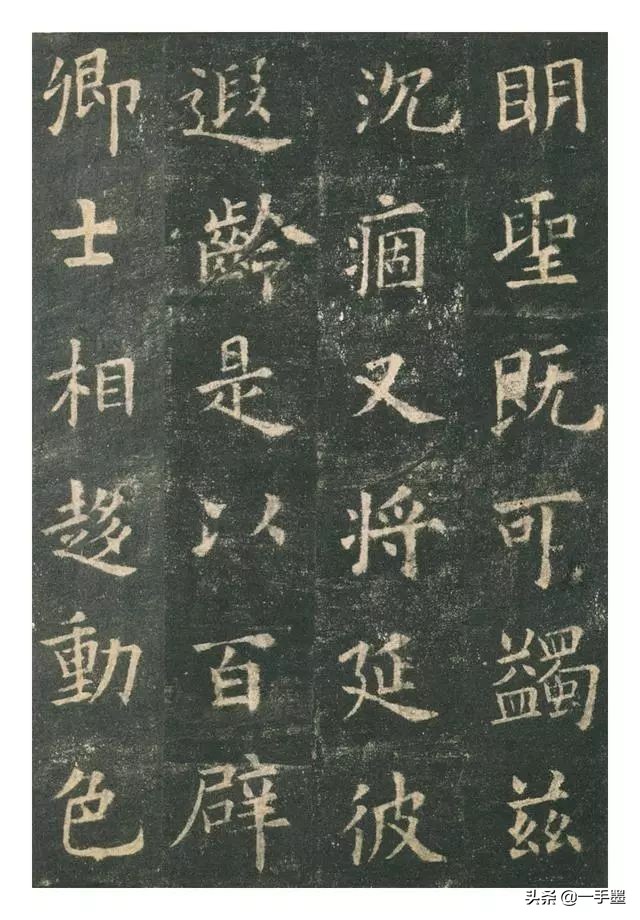 明聖既可蠲兹
沉痼又将延彼
遐齡是以百辟
卿士相趍動色
头条 @一手墨